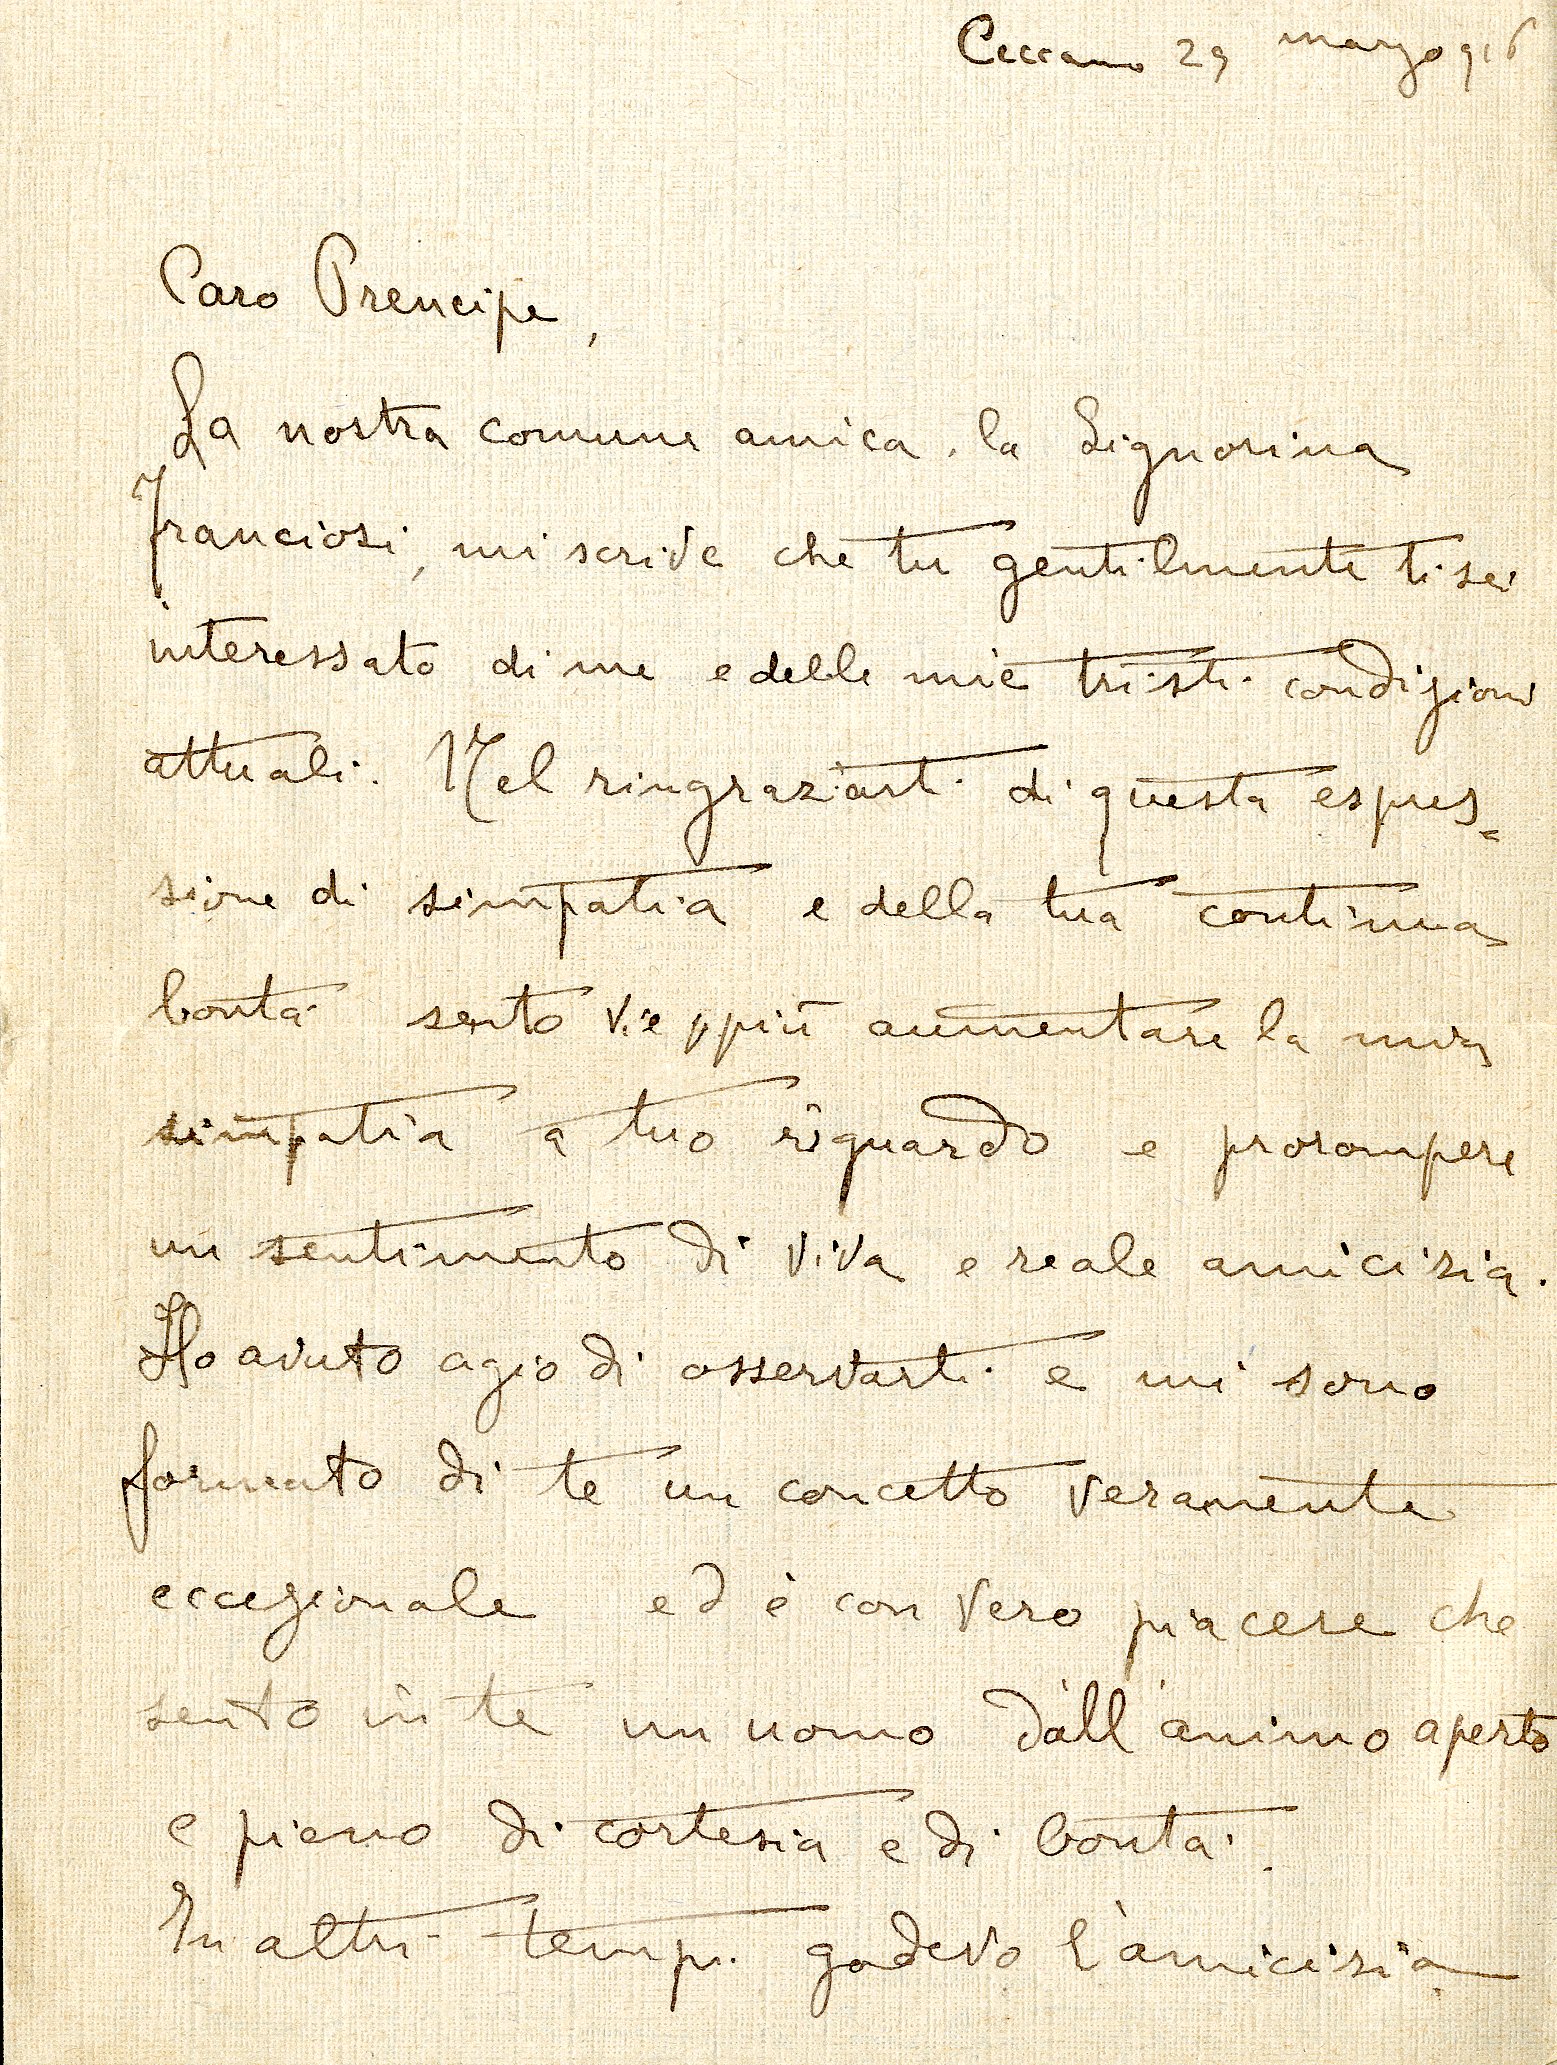 Ceccano 29 marzo 916
Caro Prencipe,
La nostra comune amica, la Signorina
Franciosi, mi scrive che tu gentilmente ti sei
interessato di me e delle mie tristi condizioni
attuali. Nel ringraziarti di questa espres=
sione di simpatia e della tua continua
bontà sento vieppiù aumentare la mia
simpatia a tuo riguardo e prorompere
un sentimento di viva e reale amicizia.
Ho avuto agio di osservarti e mi sono
formato di te un concetto veramente
eccezionale ed è con vero piacere che
sento in te un uomo dall'animo aperto
e pieno di cortesia e di bontà.
In altri tempi godevo l'amicizia